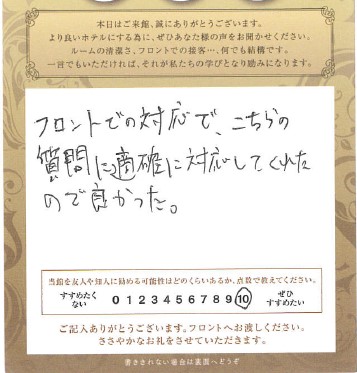 本日はご来館、誠にありがとうございます。
より良いホテルにする為に、ぜひあなた様の声をお聞かせください。
ルームの清潔さ、フロントでの接客…、何でも結構です。
一言でもいただければ、それが私たちの学びとなり励みになります。
フロントでの対応で、こちらの
質問に適確に対応してくれた
ので良かった。
当館を友人や知人に勧める可能性はどのくらいあるか、点数で教えてください。
すすめたくない 0 1 2 3 4 5 6 7 8 9 10 ぜひすすめたい
ご記入ありがとうございます。フロントへお渡しください。
ささやかなお礼をさせていただきます。
書ききれない場合は裏面へどうぞ